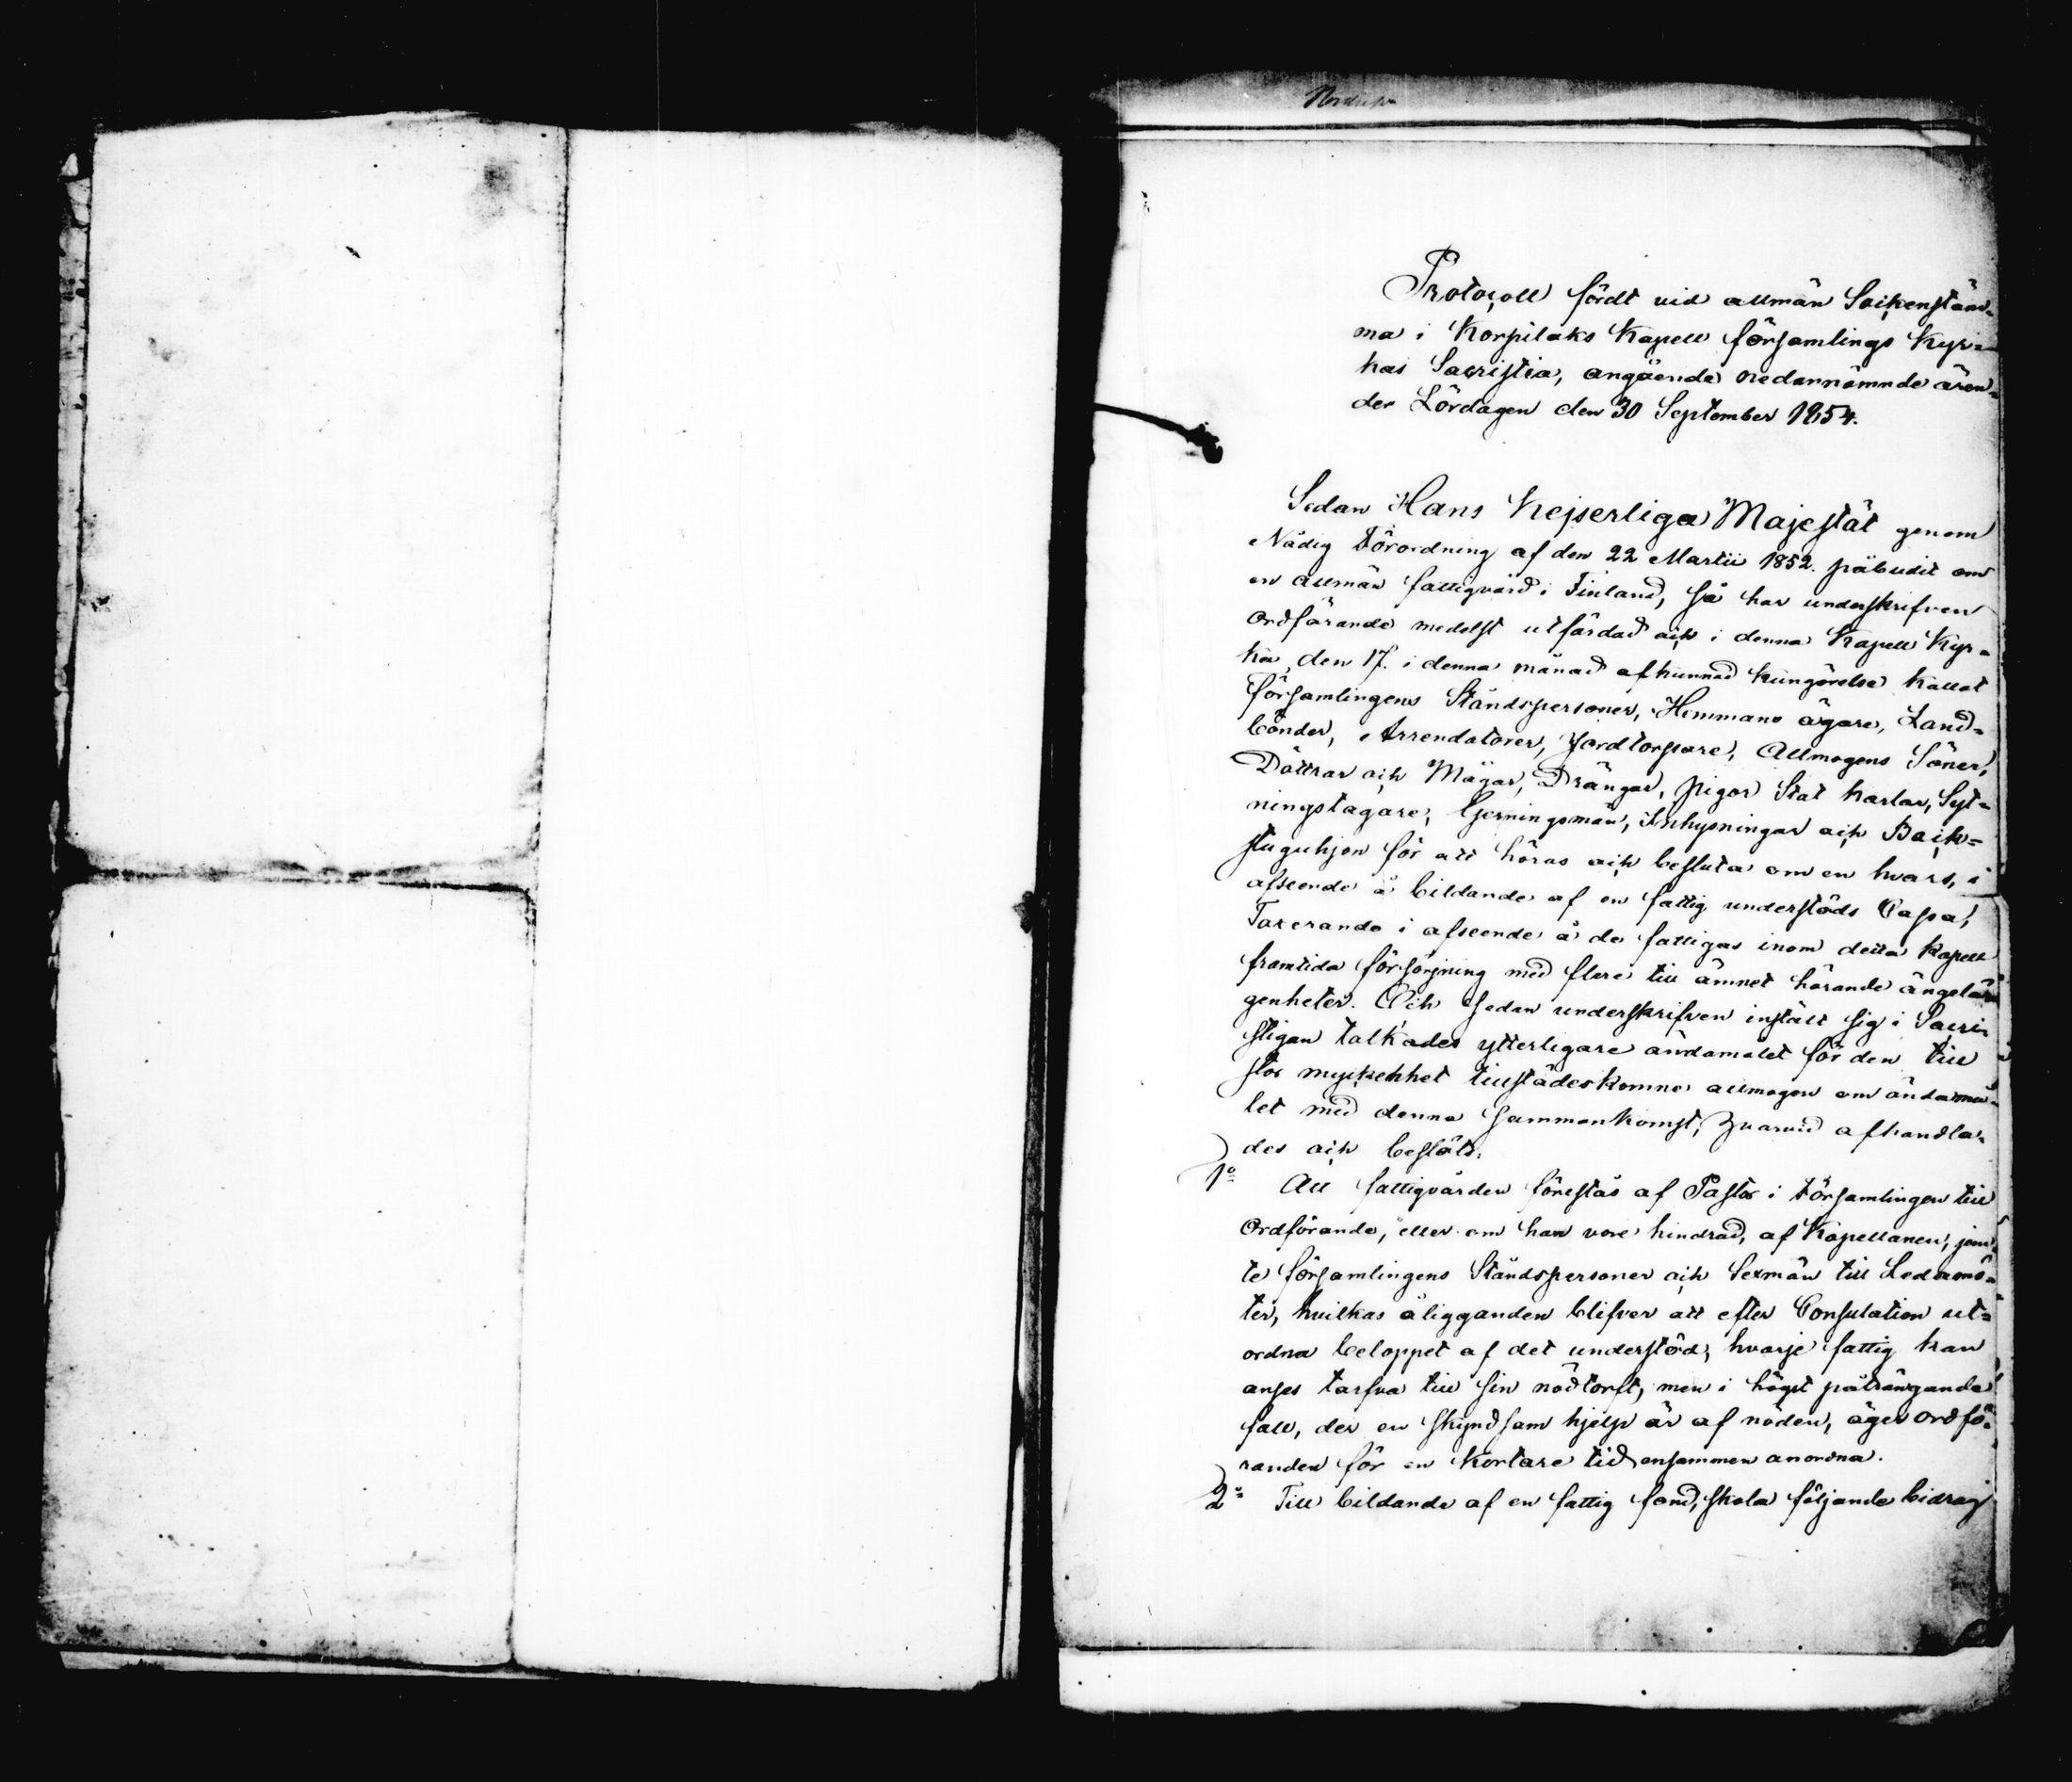 Protocoll fördt vid allmän Sockenstäm-
ma i Korpilaks Kapell församlings Kyr-
kas Sacristia, angäende nedannämnde ären-
der Lördagen den 30 September 1854.
Sedan Hans Kejserliga Majestät genom
Nådig Förordning af den 22 Martii 1852. påbudit om
en allmän fattigvård i Finland, så har underskrifven
Ordförande medelst utfärdad och i denna Kapell Kyr-
ka, den 17. i denna månad afkunnad kungörelse kallat
Församlingens Ståndspersoner, Hemmans ägare, Land-
bönder, Arrendatorer, Jordtorpare, Allmogens Söner,
Döttrar och Mågar, Drängar, pigor Stat karlar, Syt-
ningstagare, Gerningsmän, Inhysningar och Back-
stuguhjon för att höras och besluta om en hvars, i
afseende å bildande af en fattig understöds Cassa,
Taxerande i afseende å de fattigas inom detta kapell
framtida försörjning med flere till ämnet hörande angelä-
genheter. Och sedan underskrifven instält sig i Sacri-
stigan talkades ytterligare ändamålet för den till
stor myckehhet tillstädeskomne allmogen om ändamå-
let med denna sammankomst, hvarvid afhandla-
des och beslöts:
1o Att fattigvården förestås af Pastor i Församlingen till
Ordförande, eller om han vore hindrad, af Kapellanen, jem-
te församlingens Ståndspersoner och Sexmän till Ledamö-
ter, hvilkas åligganden blifver att efter Consulation ut-
ordna beloppet af det understöd, hvarje fattig kan
anses tarfva till sin nödtorft, men i högst påträngande
fall, der en skyndsam hjelp är af nöden, äger ordfö-
randen för en kortare tid ensammen anordna.
2o Till bildande af en fattig fond, skola följande bidrag